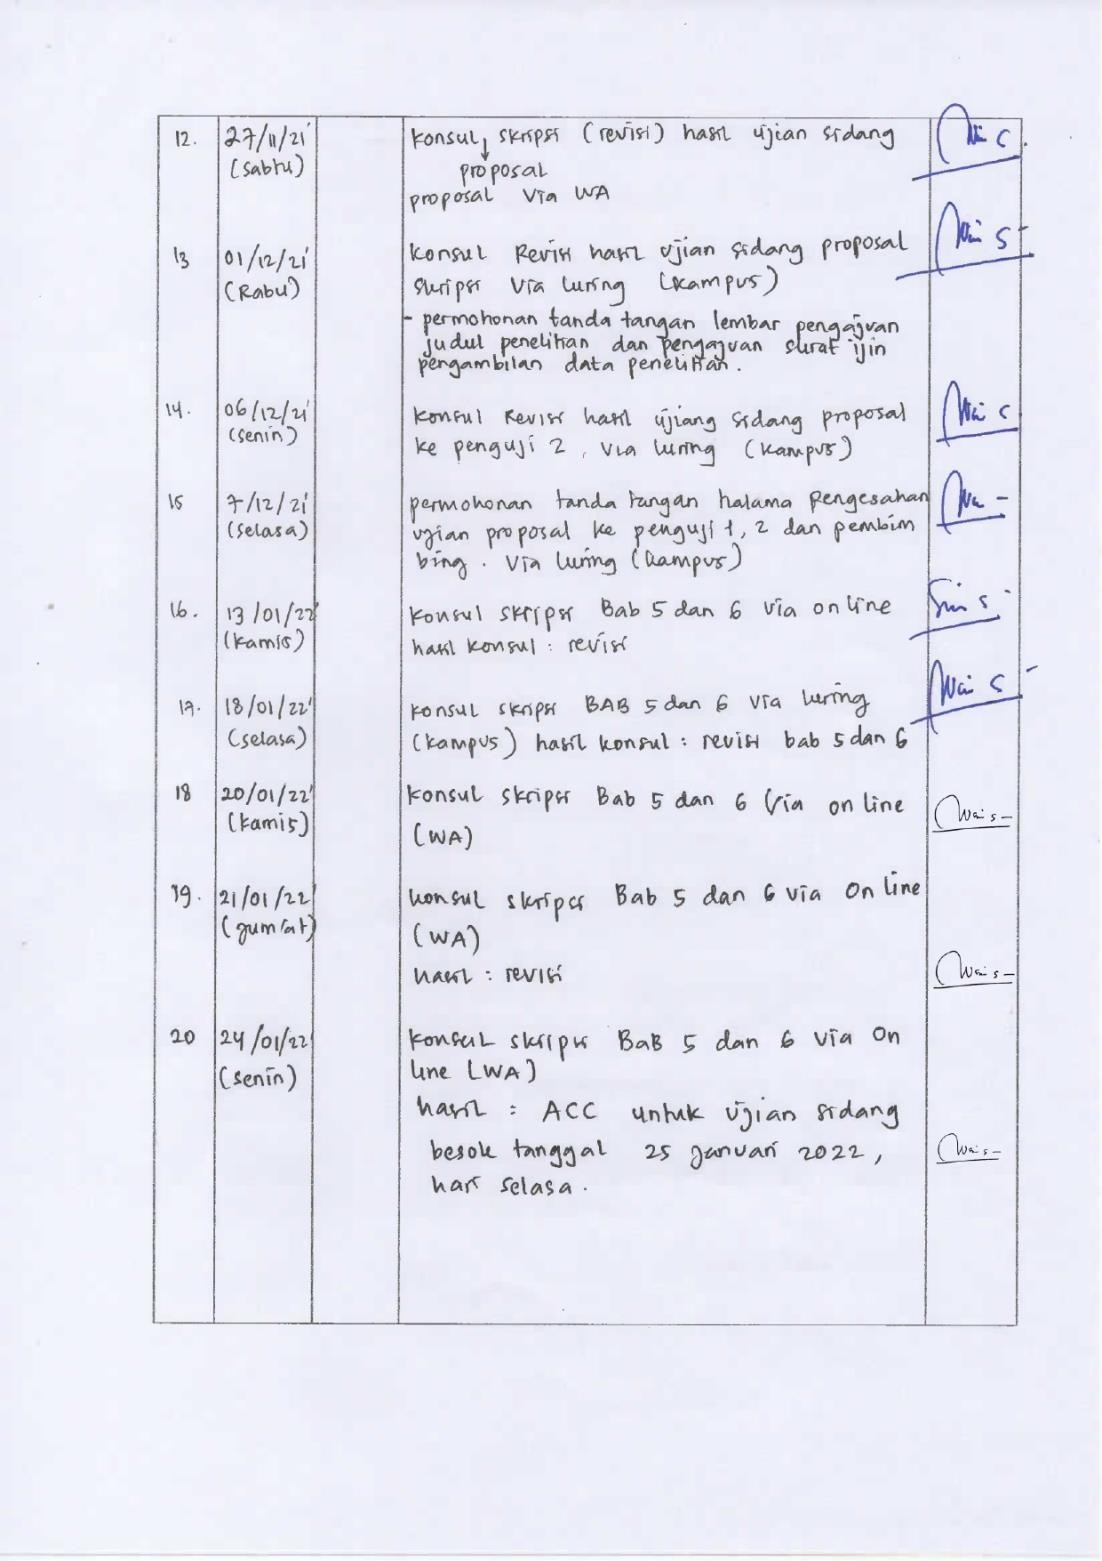 12. 27/11/21 konsul skripsi (revisi) hasil ujian sidang
(sabtu) proposal
proposal via WA
13 01/12/21 konsul Revisi hasil ujian sidang proposal
(Rabu) skripsi via luring (kampus)
- permohonan tanda tangan lembar pengajuan
judul penelitian dan pengajuan surat ijin
pengambilan data penelitian.
14. 06/12/21 konsul Revisi hasil ujiang sidang proposal
(senin) ke penguji 2, via luring (kampus)
15 7/12/21 permohonan tanda tangan halama pengesahan
(selasa) ujian proposal ke penguji 1, 2 dan pembim
bing. via luring (kampus)
16. 13/01/22 konsul skripsi Bab 5 dan 6 via on line
(kamis) hasil konsul : revisi
17. 18/01/22 konsul skripsi BAB 5 dan 6 via luring
(selasa) (kampus) hasil konsul : revisi bab 5 dan 6
18 20/01/22 konsul skripsi Bab 5 dan 6 via on line
(kamis) (WA)
19. 21/01/22 konsul skripsi Bab 5 dan 6 via On line
(jum'at) (WA)
hasil : revisi
20 24/01/22 konsul skripsi BaB 5 dan 6 via On
line (WA)
(senin)
hasil : ACC untuk ujian sidang
besok tanggal 25 januari 2022,
hari selasa.